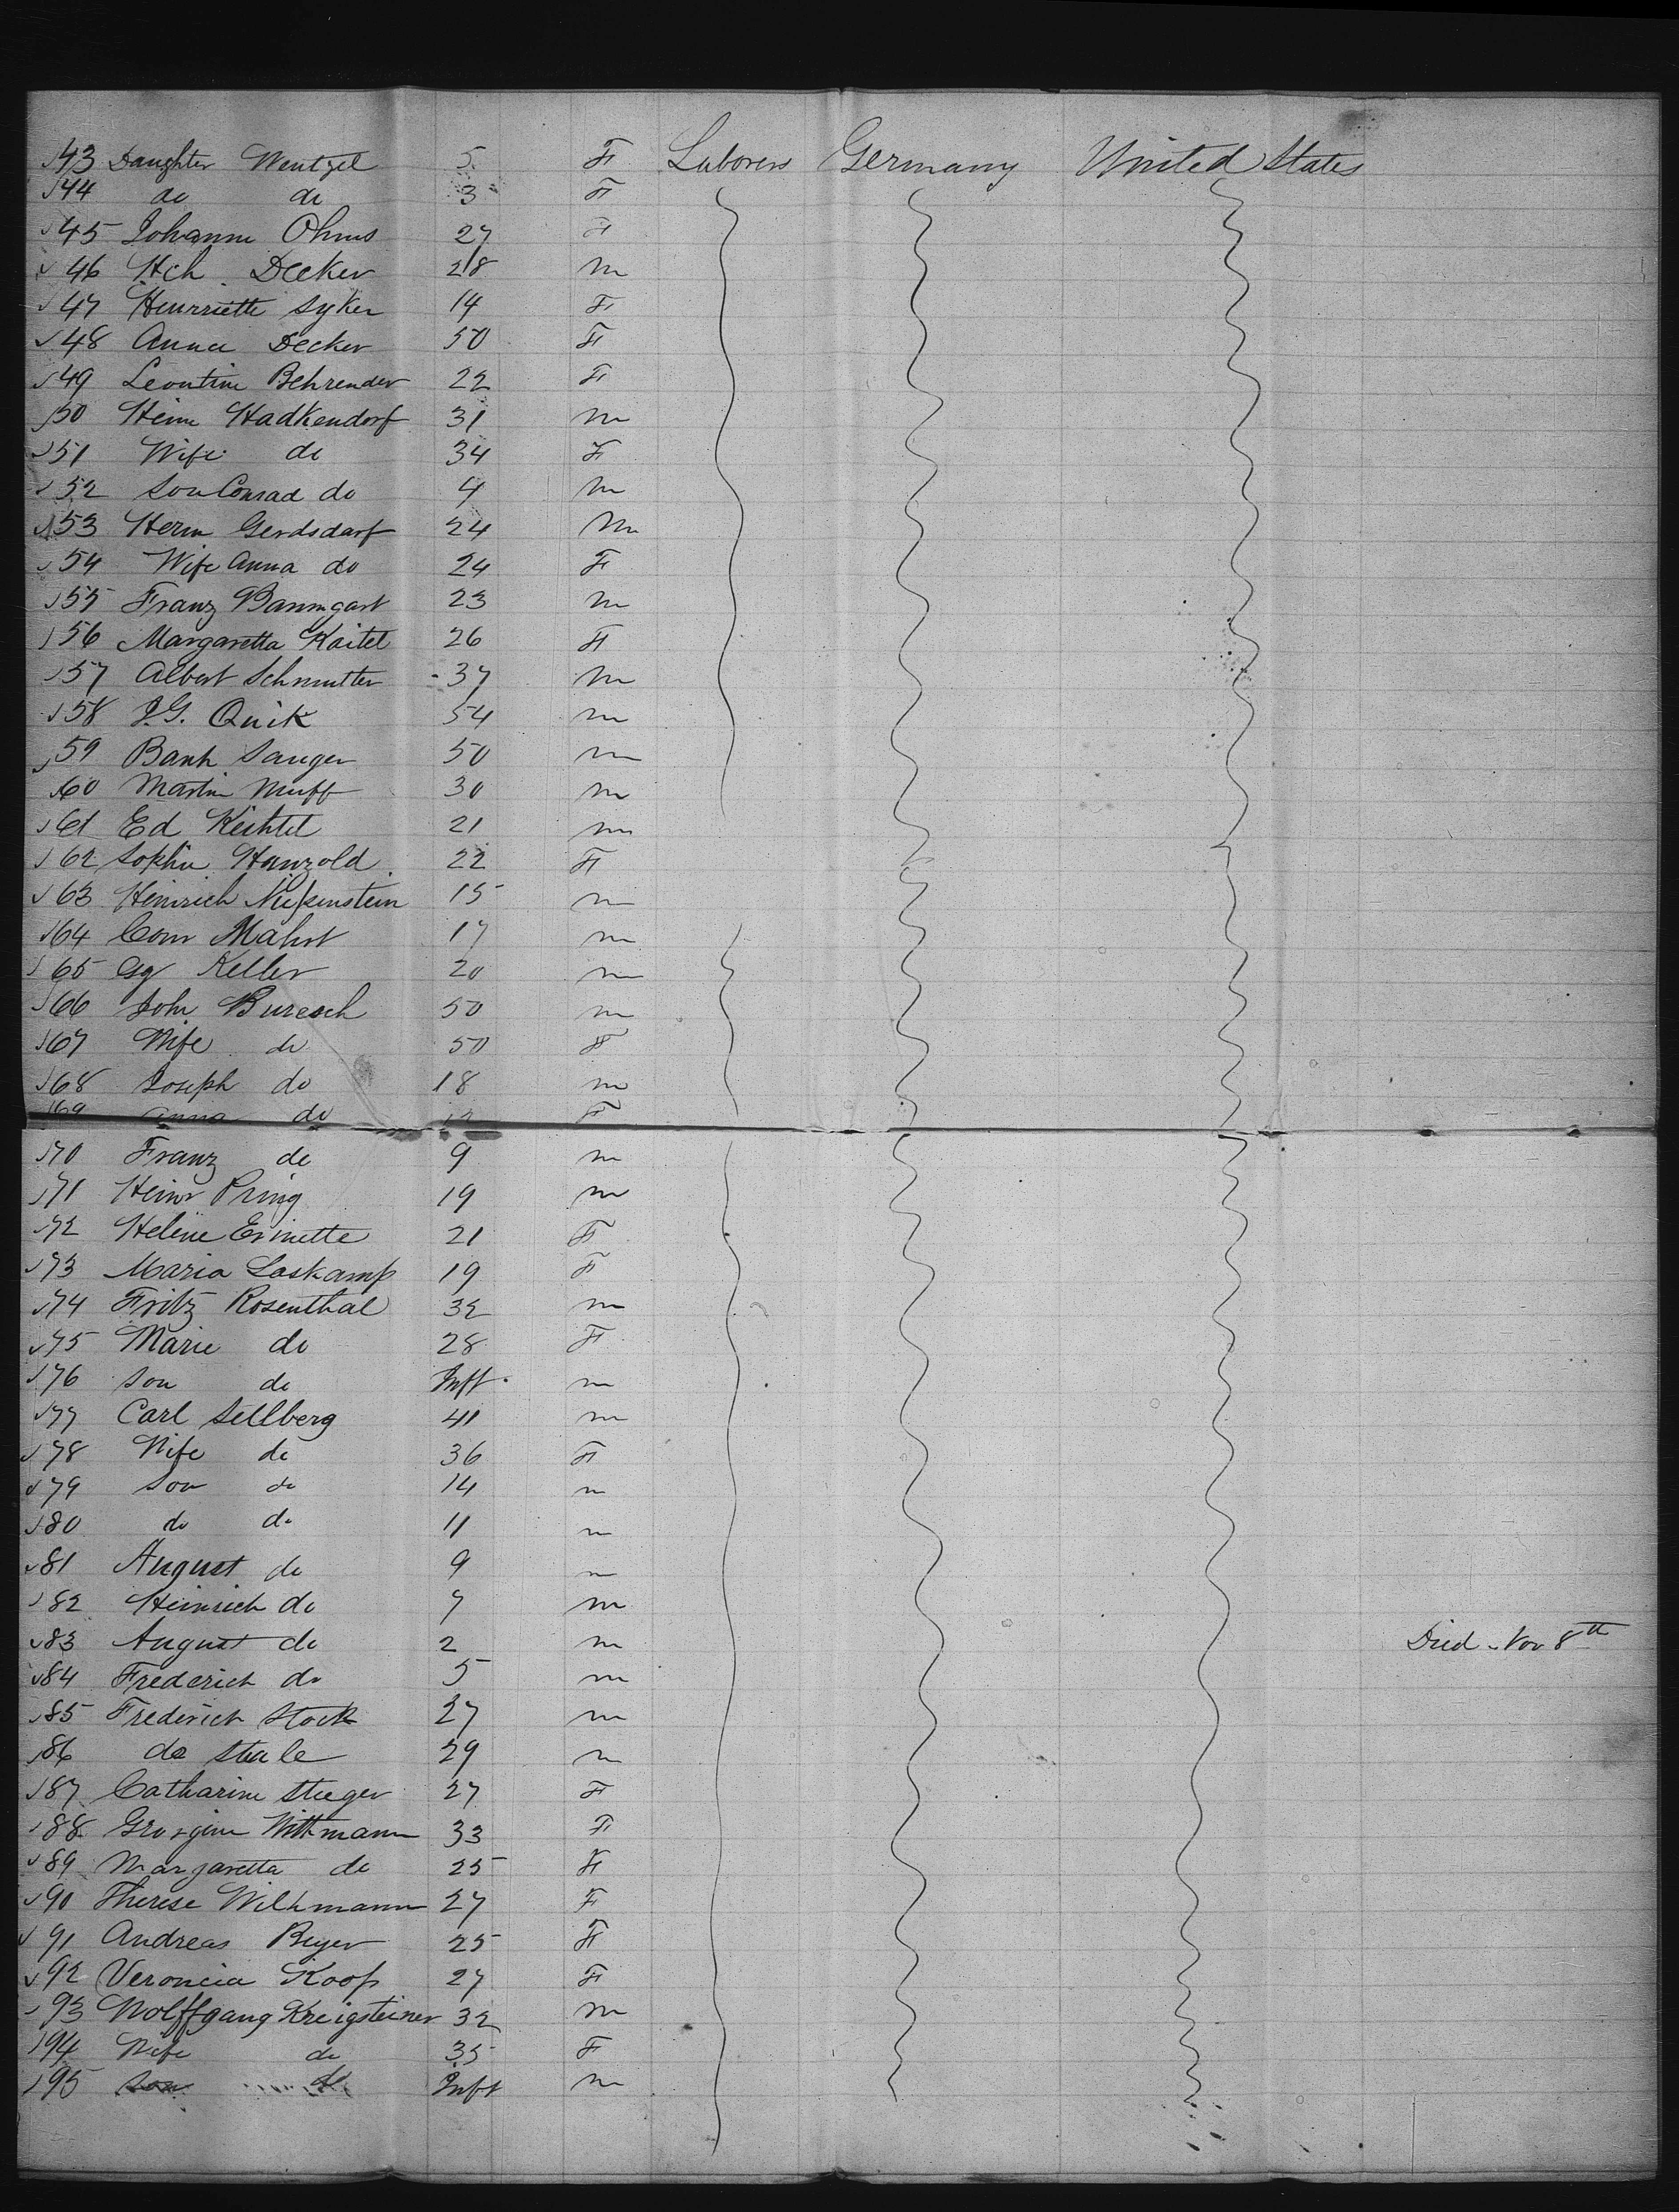 43 Daughter Wentzel 5 F Laborers Germany United States
44 do do 3 F
45 Johanne Ohms 27 F
46 Hch. Decker 28 m
47 Henrriette Syker 14 F
48 Anna Decker 50 F
49 Leontine Behrender 22 F
50 Heinr Hadkendorf 31 m
51 Wife do 34 F
52 Son Conrad do 4 m
53 Herm Gerdsdorf 24 m
54 Wife Anna do 24 F
55 Franz Baumgart 23 m
56 Margaretta Kaitel 26 F
57 Albert Schmutter 37 m
58 J.G. Quik 54 m
59 Banh Sanger 50 m
60 Martin Muff 30 m
61 Ed Keihtel 21 m
62 Sophie Hanzold 22 F
63 Heinrich 15 m
64 Conr Mahrt 17 m
65 Gg Keller 20 m
66 John Buresch 50 m
67 Wife do 50 F
68 Joseph do 18 m
69 Anna do F
70 Franz do 9 m
71 Heinr Pring 19 m
72 Helene Erinette 21 F
73 Maria Laskamp 19 F
74 Fritz Rosenthal 32 m
75 Marie do 28 F
76 Son do Inft. m
77 Carl Sellberg 41 m
78 Wife do 36 F
79 Son do 14 m
80 do do 11 m
81 August do 9 m
82 Heinrich do 7 m
83 August do 2 m Died Nov 8th
84 Frederich do 5 m
85 Frederich Stock 27 m
86 do Stale 29 m
87 Catharine Steeger 27 F
88 Georgine Wittmann 33 F
89 Margaretta do 25 F
90 Therese Wilhmann 27 F
91 Andreas Beyer 25 F
92 Veroncia Koop 27 F
93 Wolffgang Kreigsteiner 32 m
94 Wife do 35 F
95 Son do Inft m